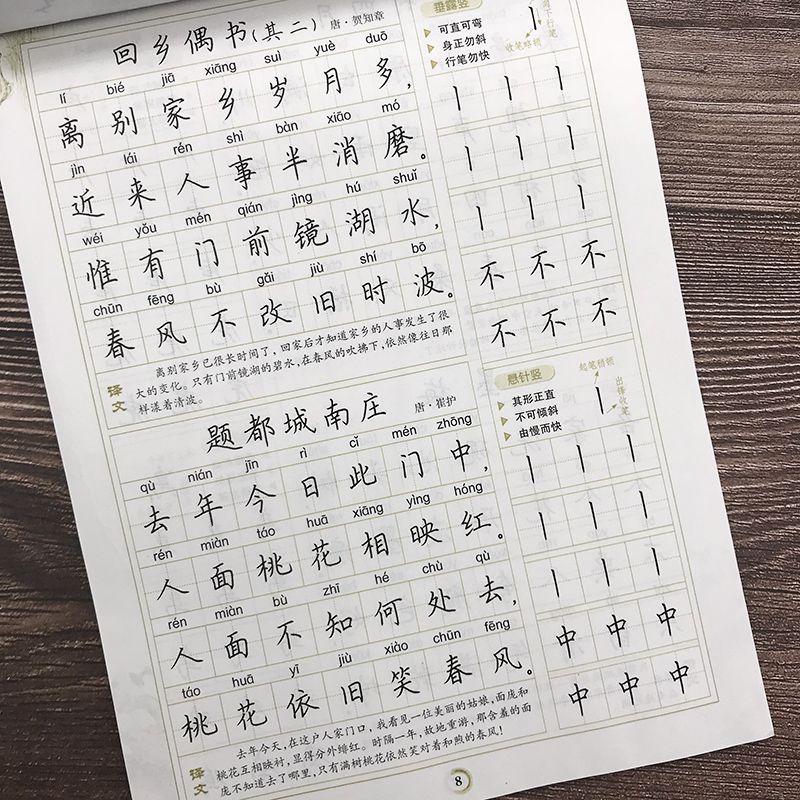 回乡偶书(其二) 唐·贺知章
lí bié jiā xiāng suì yuè duō
离别家乡岁月多，
jìn lái rén shì bàn xiāo mó
近来人事半消磨。
wéi yǒu mén qián jìng hú shuǐ
惟有门前镜湖水，
chūn fēng bù gǎi jiù shí bō
春风不改旧时波。
译文
离别家乡已很长时间了，回家后才知道家乡的人事发生了很
大的变化。只有门前镜湖的碧水，在春风的吹拂下，依然像往日那
样漾着清波。
题都城南庄 唐·崔护
qù nián jīn rì cǐ mén zhōng
去年今日此门中，
rén miàn táo huā xiāng yìng hóng
人面桃花相映红。
rén miàn bù zhī hé chù qù
人面不知何处去，
táo huā yī jiù xiào chūn fēng
桃花依旧笑春风。
译文
去年今天，在这户人家门口，我看见一位美丽的姑娘，面庞和
桃花互相映衬，显得分外绯红。时隔一年，故地重游，那含羞的面
庞不知道去了哪里，只有满树桃花依然笑对着和煦的春风！
垂露竖
可直可弯
身正勿斜
行笔勿快
收笔略顿
行笔
丨丨丨
丨丨丨
丨丨丨
不不不
不不不
悬针竖
其形正直
不可倾斜
由慢而快
起笔稍顿
出锋收笔
丨丨丨
丨丨丨
丨丨丨
中中中
中中中
8